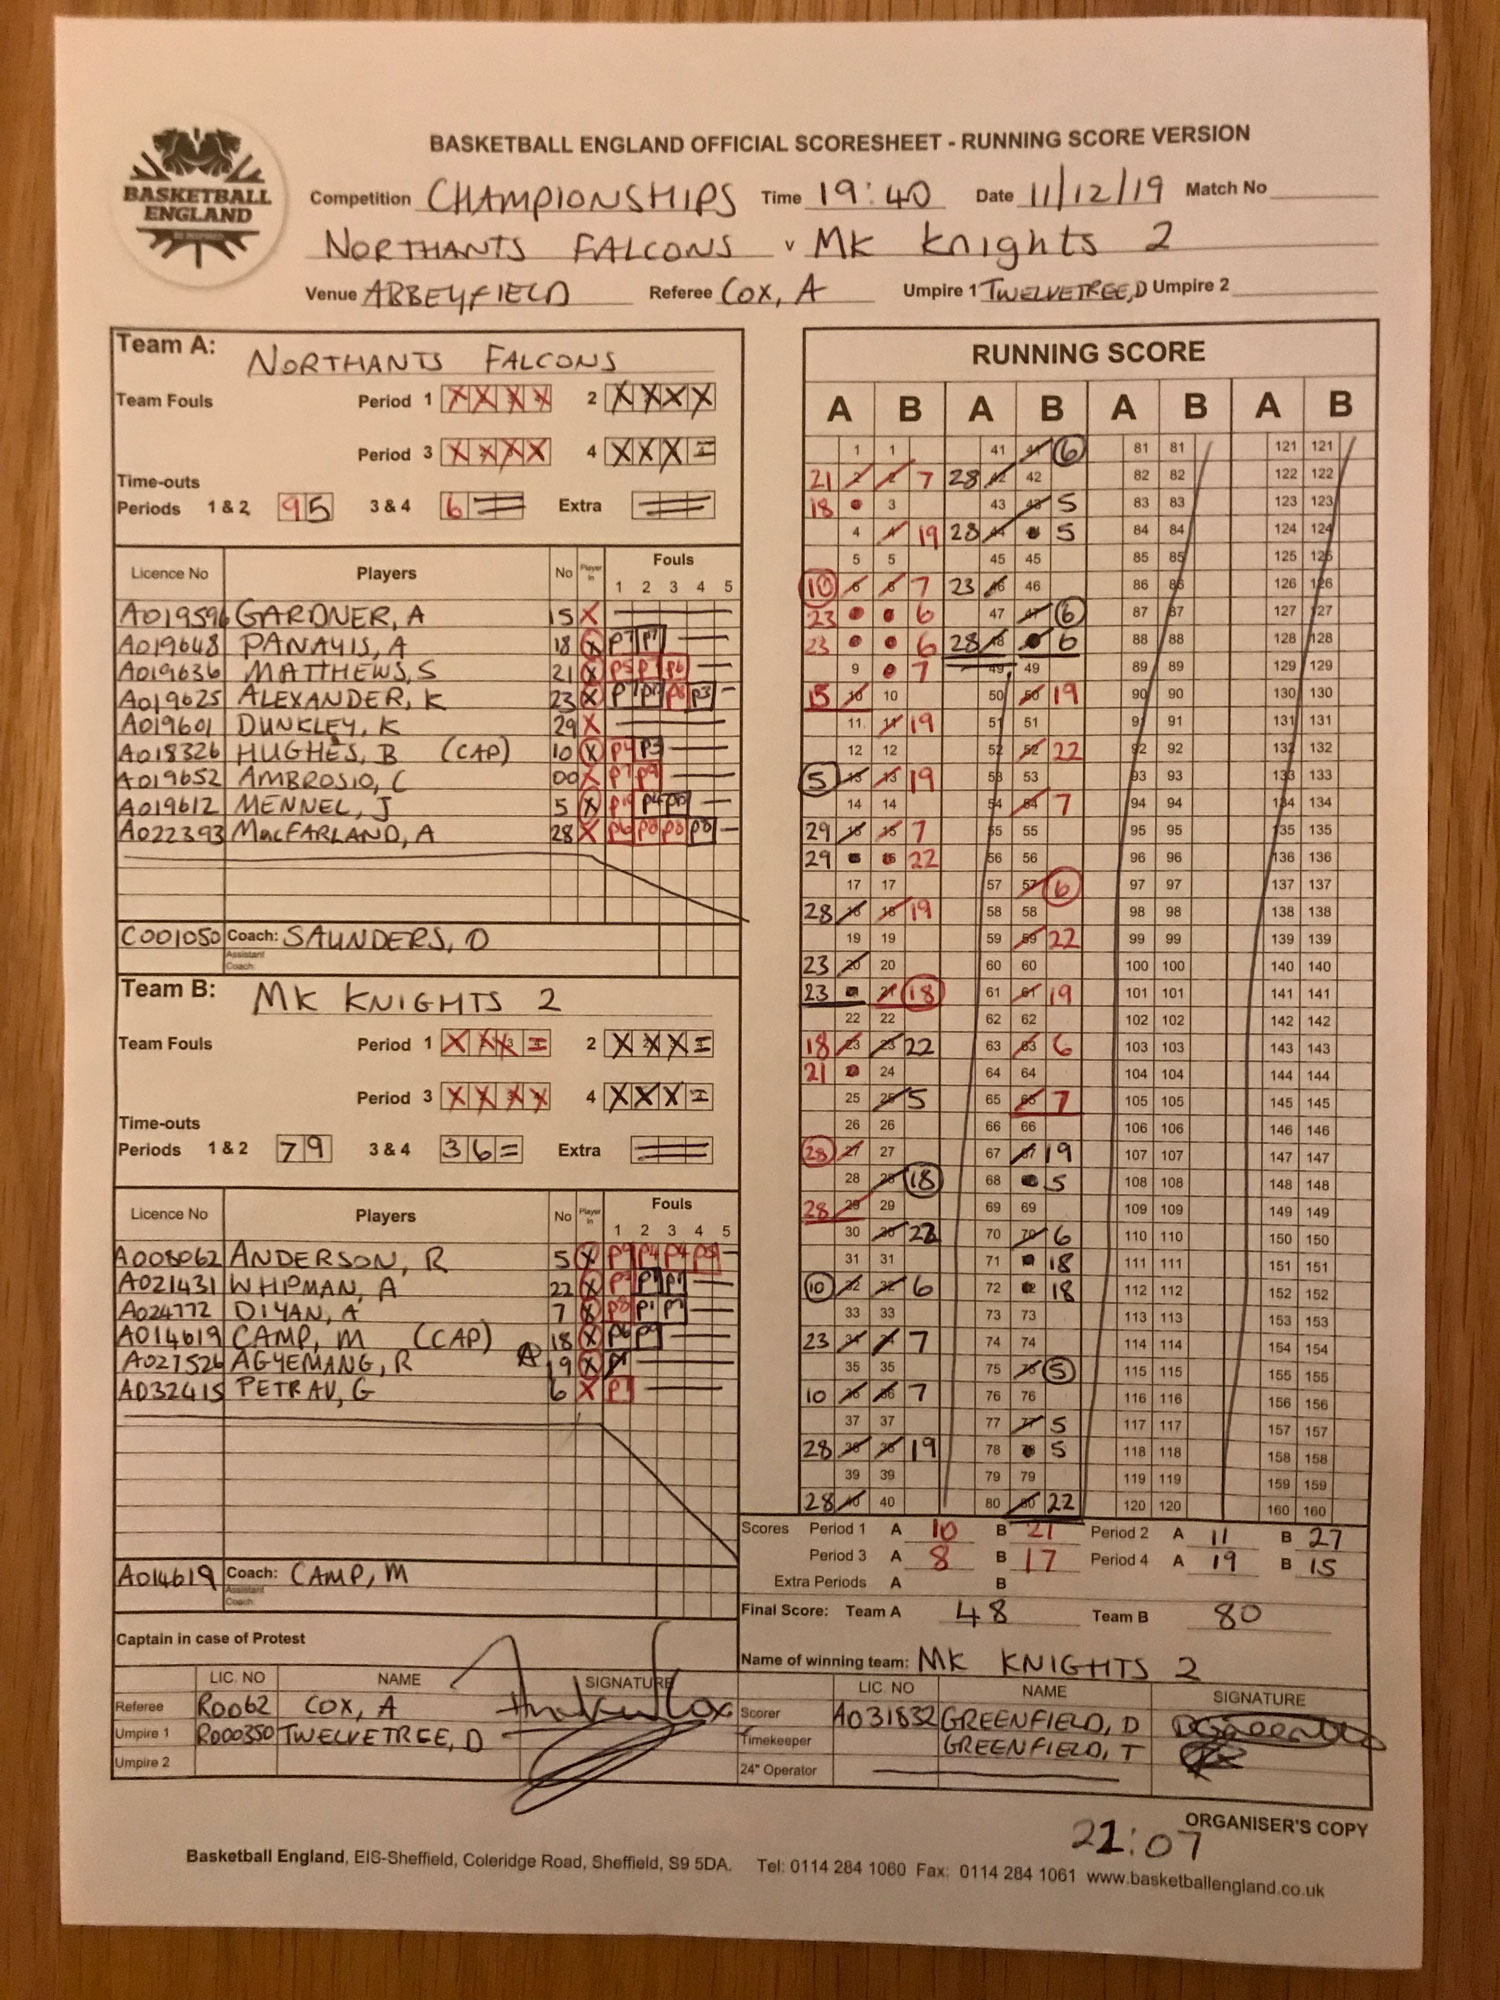 BASKETBALL ENGLAND OFFICIAL SCORESHEET - RUNNING SCORE VERSION
BASKETBALL
ENGLAND
Competition CHAMPIONSHIPS Time 19:40 Date 11/12/19 Match No
NORTHANTS FALCONS v MK Knights 2
Venue ABBEYFIELD Referee COX, A Umpire 1 TWELVETREE, D Umpire 2
Team A: NORTHANTS FALCONS
Team Fouls Period 1 X X X X 2 X X X X
Period 3 X X X X 4 X X X
Time-outs
Periods 1 & 2 9 5 3 & 4 6 Extra
Licence No Players No Player in Fouls 1 2 3 4 5
A019596 GARDNER, A 15 X
A019648 PANAYIS, A 18 X P7 P1
A019636 MATTHEWS, S 21 X P5 P7 P6
A019625 ALEXANDER, K 23 X P7 P10 P8 P3
A019601 DUNKLEY, K 29 X
A018326 HUGHES, B (CAP) 10 X P4 P3
A019652 AMBROSIO, C 00 X P7 P9
A019612 MENNEL, J 5 X P10 P4 P10
A022393 MacFARLAND, A 28 X P6 P8 P8 P8
C001050 Coach: SAUNDERS, D
Assistant Coach:
Team B: MK KNIGHTS 2
Team Fouls Period 1 X X X 2 X X X
Period 3 X X X X 4 X X X
Time-outs
Periods 1 & 2 7 9 3 & 4 3 6 Extra
Licence No Players No Player in Fouls 1 2 3 4 5
A008062 ANDERSON, R 5 X P9 P4 P4
A021431 WHIPMAN, A 22 X
A024772 DIYAN, A 7 X P8 P1
A014619 CAMP, M (CAP) 18 X P6 P9
A027526 AGYEMANG, R 19 X
A032415 PETRAV, G 6 X P1
A014619 Coach: CAMP, M
Assistant Coach:
Captain in case of Protest
LIC. NO NAME SIGNATURE
Referee R0062 COX, A
Umpire 1 R000350 TWELVETREE, D
Umpire 2
RUNNING SCORE
A B A B A B A B
1 1 41 41 6 81 81 121 121
21 2 2 7 28 42 42 82 82 122 122
18 3 43 43 5 83 83 123 123
4 4 19 28 44 5 84 84 124 124
5 5 45 45 85 85 125 125
10 6 6 7 23 46 46 86 86 126 126
23 6 47 47 6 87 87 127 127
23 6 28 48 6 88 88 128 128
9 7 49 49 89 89 129 129
15 10 10 50 50 19 90 90 130 130
11 11 19 51 51 91 91 131 131
12 12 52 52 22 92 92 132 132
5 13 13 19 53 53 93 93 133 133
14 14 54 54 7 94 94 134 134
29 15 15 7 55 55 95 95 135 135
29 16 22 56 56 96 96 136 136
17 17 57 57 6 97 97 137 137
28 18 18 19 58 58 98 98 138 138
19 19 59 59 22 99 99 139 139
23 20 20 60 60 100 100 140 140
23 21 18 61 61 19 101 101 141 141
22 22 62 62 102 102 142 142
18 23 23 22 63 63 6 103 103 143 143
21 24 64 64 104 104 144 144
25 25 5 65 65 7 105 105 145 145
26 26 66 66 106 106 146 146
28 27 27 67 67 19 107 107 147 147
28 28 18 68 5 108 108 148 148
28 29 29 69 69 109 109 149 149
30 30 22 70 70 6 110 110 150 150
31 31 71 18 111 111 151 151
10 32 32 6 72 72 18 112 112 152 152
33 33 73 73 113 113 153 153
23 34 34 7 74 74 114 114 154 154
35 35 75 75 5 115 115 155 155
10 36 36 7 76 76 116 116 156 156
37 37 77 77 5 117 117 157 157
28 38 38 19 78 78 5 118 118 158 158
39 39 79 79 119 119 159 159
28 40 40 80 80 22 120 120 160 160
Scores Period 1 A 10 B 21 Period 2 A 11 B 27
Period 3 A 8 B 17 Period 4 A 19 B 15
Extra Periods A B
Final Score: Team A 48 Team B 80
Name of winning team: MK KNIGHTS 2
LIC. NO NAME SIGNATURE
Scorer A031832 GREENFIELD, D
Timekeeper GREENFIELD, T
24" Operator
ORGANISER'S COPY
21:07
Basketball England, EIS-Sheffield, Coleridge Road, Sheffield, S9 5DA. Tel: 0114 284 1060 Fax: 0114 284 1061 www.basketballengland.co.uk